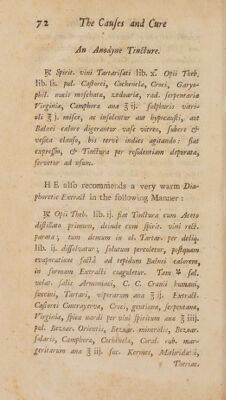 72 The Causes and Cure
An Anodyne Tincture.
℞ Spirit. vini Tartarisati lib. x. Opii Theb.
lib. ſs. pul. Castorei, Cochinela, Croci, Garyo-
phil. nucis moschata, zedoaria, rad. serpentaria
Virginia, Camphora ana ʒ ij. sulphuris vitri-
oli ʒ j. misce, ac insolentur aut hypocausti, aut
Balnei calore digerantur vase vitreo, subere &
vesica clauso, bis terve indies agitando: fiat
expressio, & Tinctura per residentiam depurata,
servetur ad usum.
HE also recommends a very warm Dia-
phoretic Extract in the following Manner:
℞ Opii Theb. lib. ij. fiat Tinctura cum Aceto
distillato primum, deinde cum spirit. vini rect.
parata; tum demum in ol. Tartar. per deliq.
lib. ij. dissolvatur; solutum percoletur, postquam
evaporatione facta ad tepidum Balnei calorem,
in formam Extracti coaguletur. Tum ♃ sal.
volat. salis Armoniaci, C. C. Cranii humani,
succini, Tartari, viperarum ana ʒ ij. Extract.
Castorei Contrayerva, Croci, gentiana, serpentana,
Virginia, spica nardi per vini spiritum ana ʒ iij.
pul. Bezoar. Orientis, Bezoar. mineralis, Bezoar.
solaris, Camphora, Cochinela, Coral. rub. mar-
garitarum ana ʒ iij. suc. Kermes, Mithridatii,
Theriac.